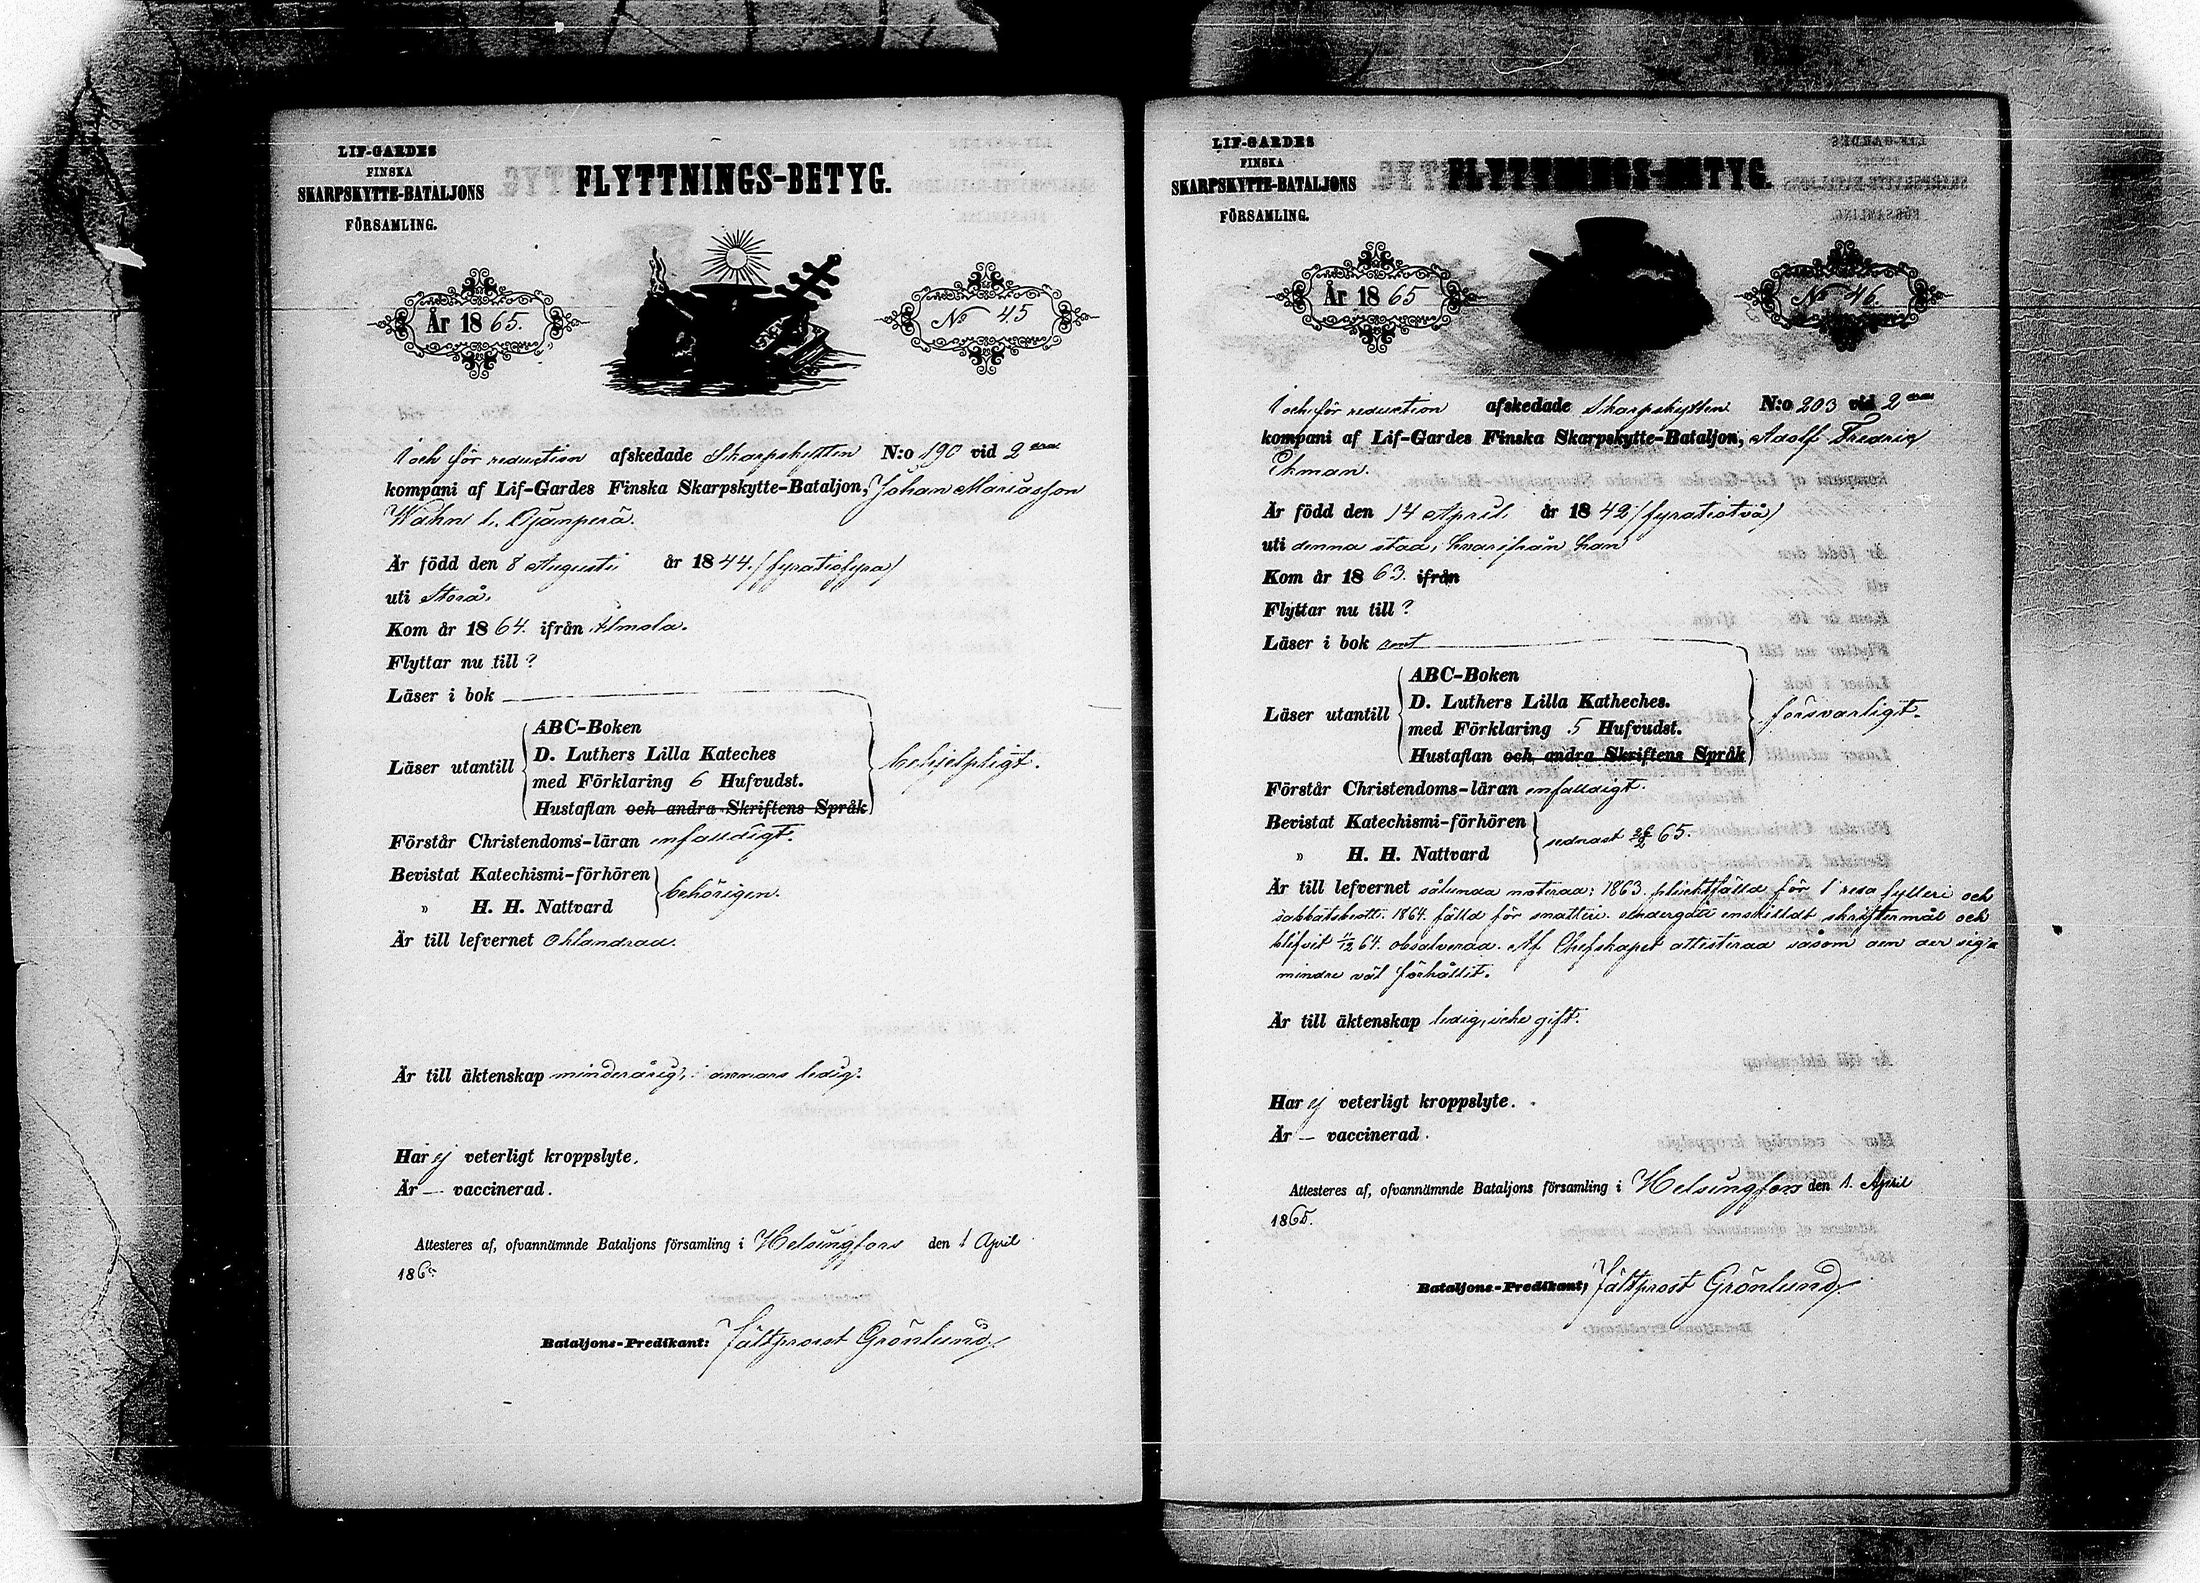 LIF-GARDES
FINSKA
SKARPSKYTTE-BATALJONS
FÖRSAMLING.
FLYTTNINGS-BETYG.
År 1865.
No 45
I och för reduction afskedade Skarpskytten N:o 190 vid 2
kompani af Lif-Gardes Finska Skarpskytte-Bataljon, Johan Mariasson
Wähn
Är född den 8 Augusti år 1844. (fyratiofyra)
uti Storå.
Kom år 1864. ifrån Ilmola.
Flyttar nu till ?
Läser i bok
Läser utantill
ABC-Boken
D. Luthers Lilla Kateches
med Förklaring 6 Hufvudst.
Hustaflan och andra Skriftens Språk
behjelpligt.
Förstår Christendoms-läran enfaldigt.
Bevistat Katechismi-förhören
„ H. H. Nattvard
behörigen.
Är till lefvernet oklandrad.
Är till äktenskap minderårig, annars ledig.
Har ej veterligt kroppslyte.
Är — vaccinerad.
Attesteres af, ofvannämnde Bataljons församling i Helsingfors den 1 April
1865.
Bataljons-Predikant: Fältprost Grönlund.
LIF-GARDES
FINSKA
SKARPSKYTTE-BATALJONS
FÖRSAMLING.
FLYTTNINGS-BETYG.
År 1865
No 46.
I och för reduction afskedade Skarpskytten N:o 203 vid 2
kompani af Lif-Gardes Finska Skarpskytte-Bataljon, Adolf Fredrig
Ekman.
Är född den 14 April år 1842 (fyratiotvå)
uti denna stad, hvarifrån han
Kom år 1863. ifrån
Flyttar nu till ?
Läser i bok rent
Läser utantill
ABC-Boken
D. Luthers Lilla Katheches.
med Förklaring 5 Hufvudst.
Hustaflan och andra Skriftens Språk
försvarligt.
Förstår Christendoms-läran enfaldigt.
Bevistat Katechismi-förhören
„ H. H. Nattvard
sednast 26/2 65.
Är till lefvernet sålunda noterad; 1863 pliktfälld för 1 resa fylleri och
sabbatsbrott. 1864 fälld för snatteri. undergått enskildt skriftermål och
blifvit 64. absolverad. Af Chefskapet attesterad såsom den der sig
mindre väl förhållit.
Är till äktenskap ledig, icke gift.
Har ej veterligt kroppslyte.
Är — vaccinerad.
Attesteres af, ofvannämnde Bataljons församling i Helsingfors den 1. April
1865.
Bataljons-Predikant; Fältprost Grönlund.